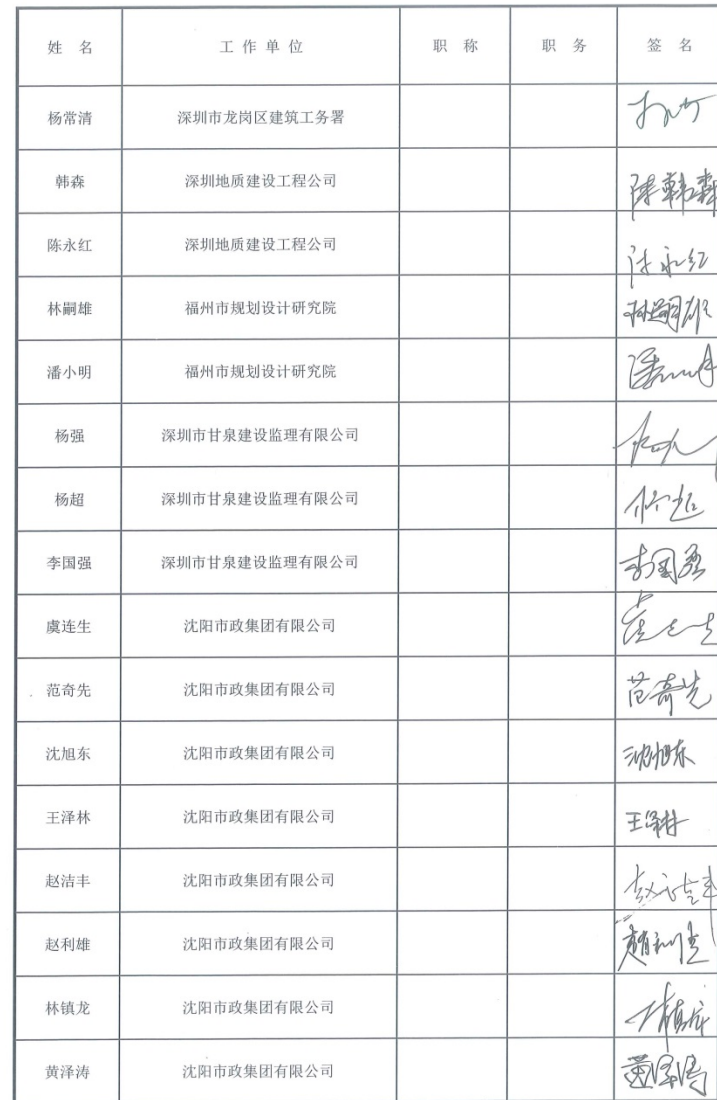 姓 名 工 作 单 位 职 称 职 务 签 名
杨常清 深圳市龙岗区建筑工务署
韩森 深圳地质建设工程公司 韩森
陈永红 深圳地质建设工程公司 陈永红
林嗣雄 福州市规划设计研究院 林嗣雄
潘小明 福州市规划设计研究院 潘小明
杨强 深圳市甘泉建设监理有限公司
杨超 深圳市甘泉建设监理有限公司 杨超
李国强 深圳市甘泉建设监理有限公司 李国强
虞连生 沈阳市政集团有限公司
范奇先 沈阳市政集团有限公司 范奇先
沈旭东 沈阳市政集团有限公司 沈旭东
王泽林 沈阳市政集团有限公司 王泽林
赵洁丰 沈阳市政集团有限公司 赵洁丰
赵利雄 沈阳市政集团有限公司
林镇龙 沈阳市政集团有限公司 林镇龙
黄泽涛 沈阳市政集团有限公司 黄泽涛